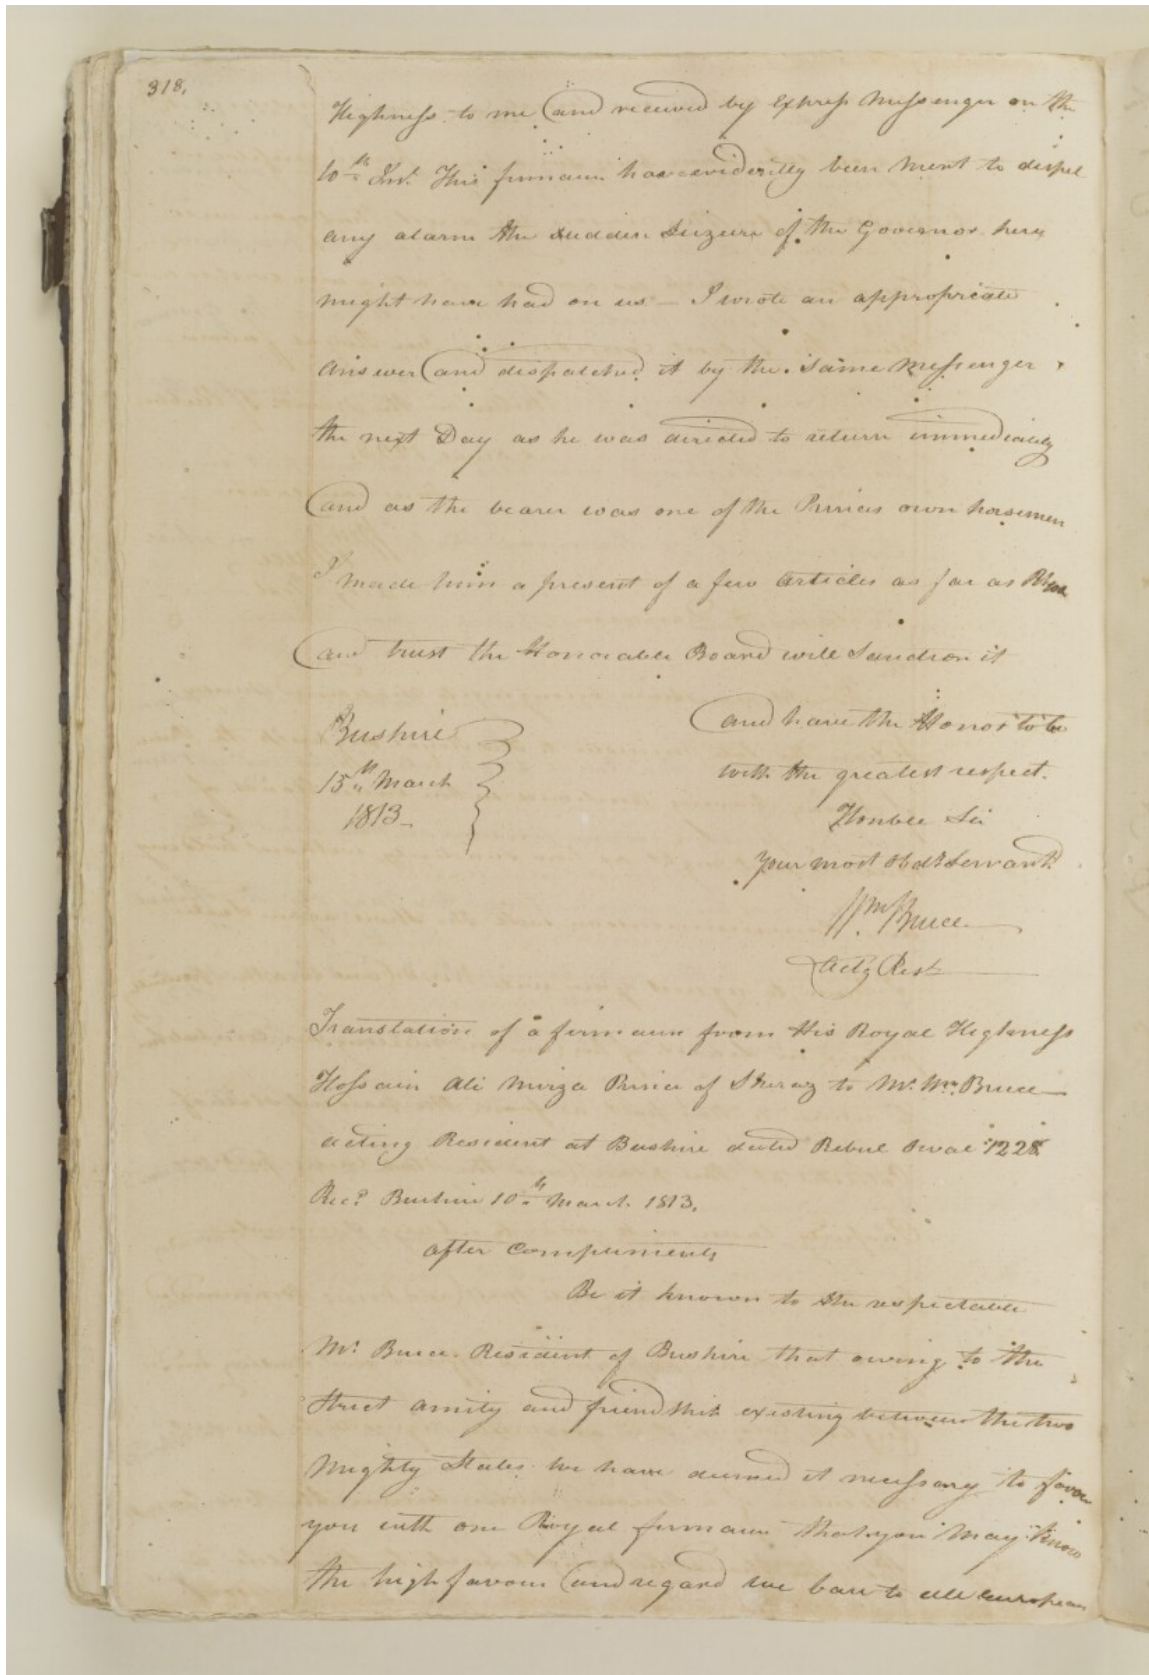 318.
Highness to me and received by Express Messenger on the
10th Inst. This firmaun has evidently been ment to dispel
any alarm the sudden Seizure of the Governor here
might have had on us — I wrote an appropriate
answer and dispatched it by the same Messenger
the next Day as he was directed to return immediately
and as the bearer was one of the Princes own horsemen
I made him a present of a few articles as far as
and trust the Honorable Board will Sanction it
and have the Honor to be
with the greatest respect.
Honble Sir
Your most Obdt Servant
Wm Bruce
Actg Rest
Bushire
15th March
1813
Translation of a firmaun from His Royal Highness
Hossain Ali Mirza Prince of Sheraz to Mr. Wm. Bruce
acting Resident at Bushire dated Rebul Avval 1228
Recd Bushire 10th March 1813.
after Compliments
Be it known to the respectable
Mr Bruce Resident of Bushire that owing to the
Strict amity and friendship existing between the two
Mighty States we have deemed it necessary to favor
you with our Royal firmaun that you may know
the high favour and regard we bare to all european